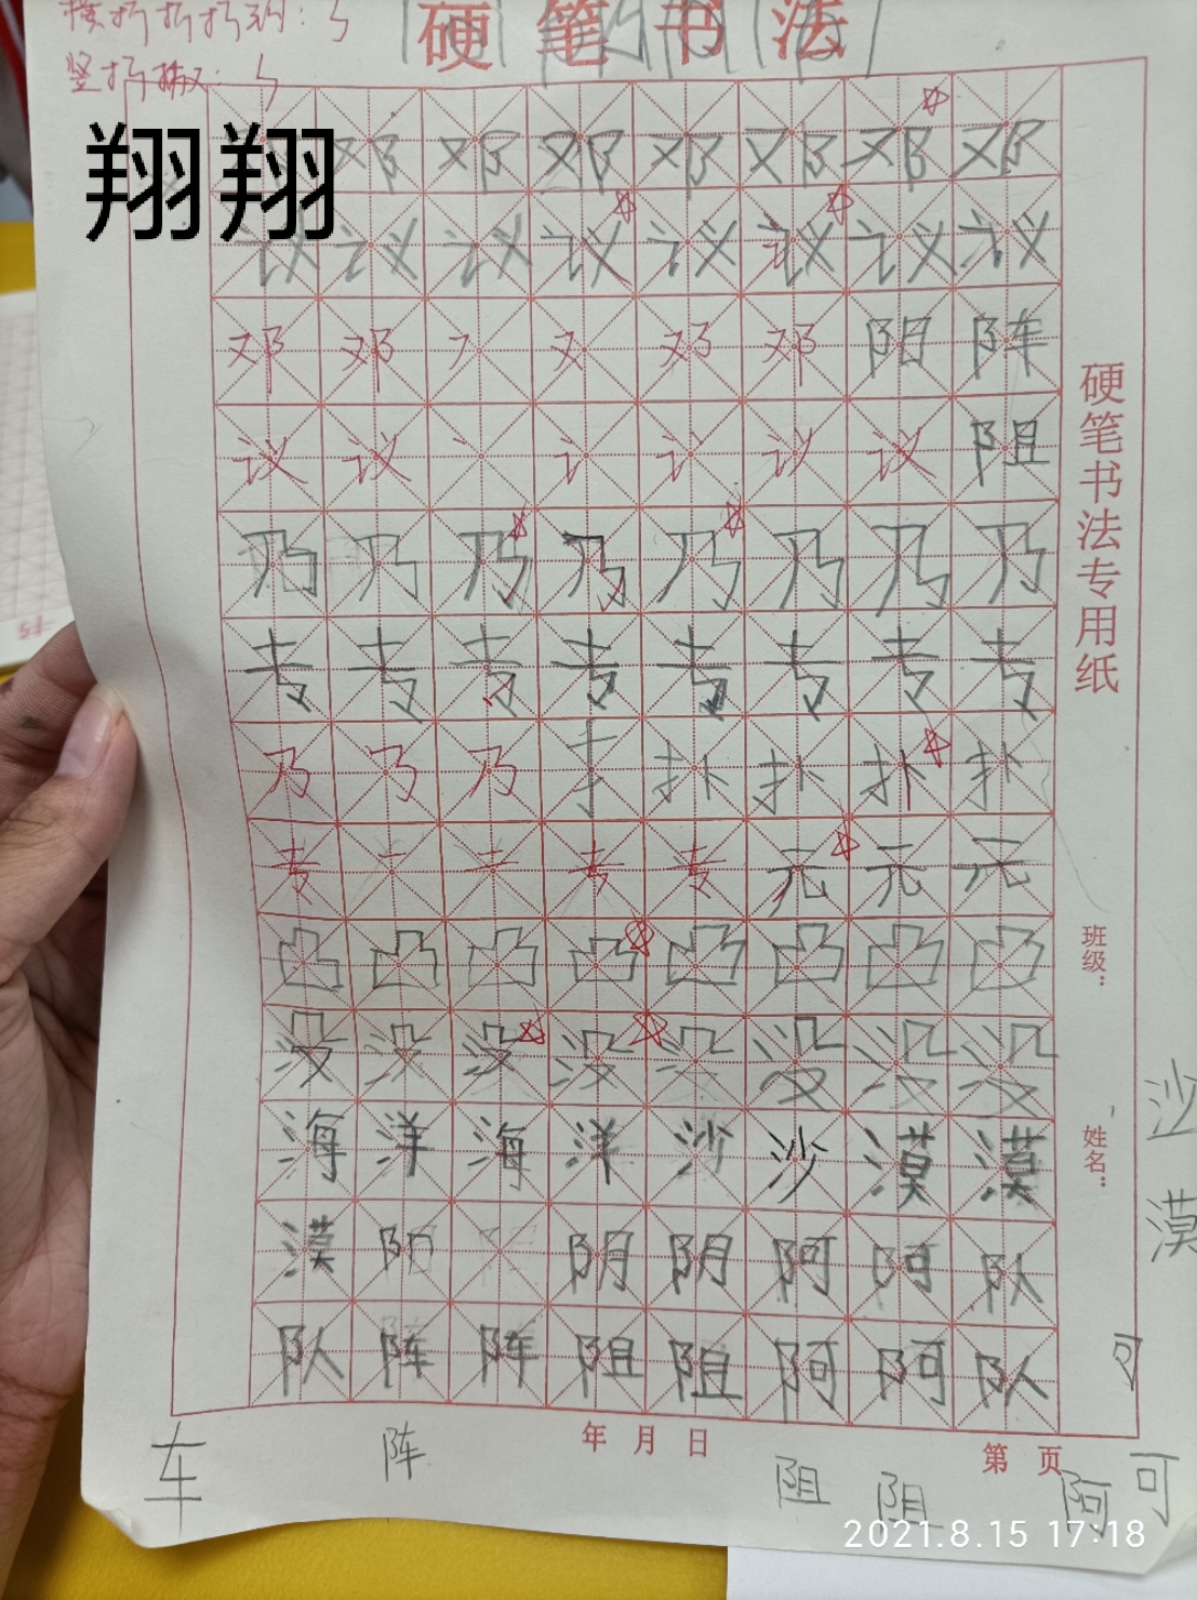 横折折折钩：㇡
竖折撇：ㄣ
硬笔书法
翔翔
邓邓邓邓邓邓邓
议议议议议议议议
邓邓又邓邓阳阵
议议讠议议阻
乃乃乃乃乃乃乃乃
专专专专专专专专
乃乃乃扌扑扑扑扑
专专专元元元
凸凸凸凸凸凸凸凸
没没没没没没没没
海洋海洋沙沙漠漠
漠阴阴阿阿队
队阵阵阻阻阿阿队
硬笔书法专用纸
班级：
姓名：
沙
漠
可
年 月 日
第 页
车 阵 阻 阻 阿 可
2021.8.15 17:18